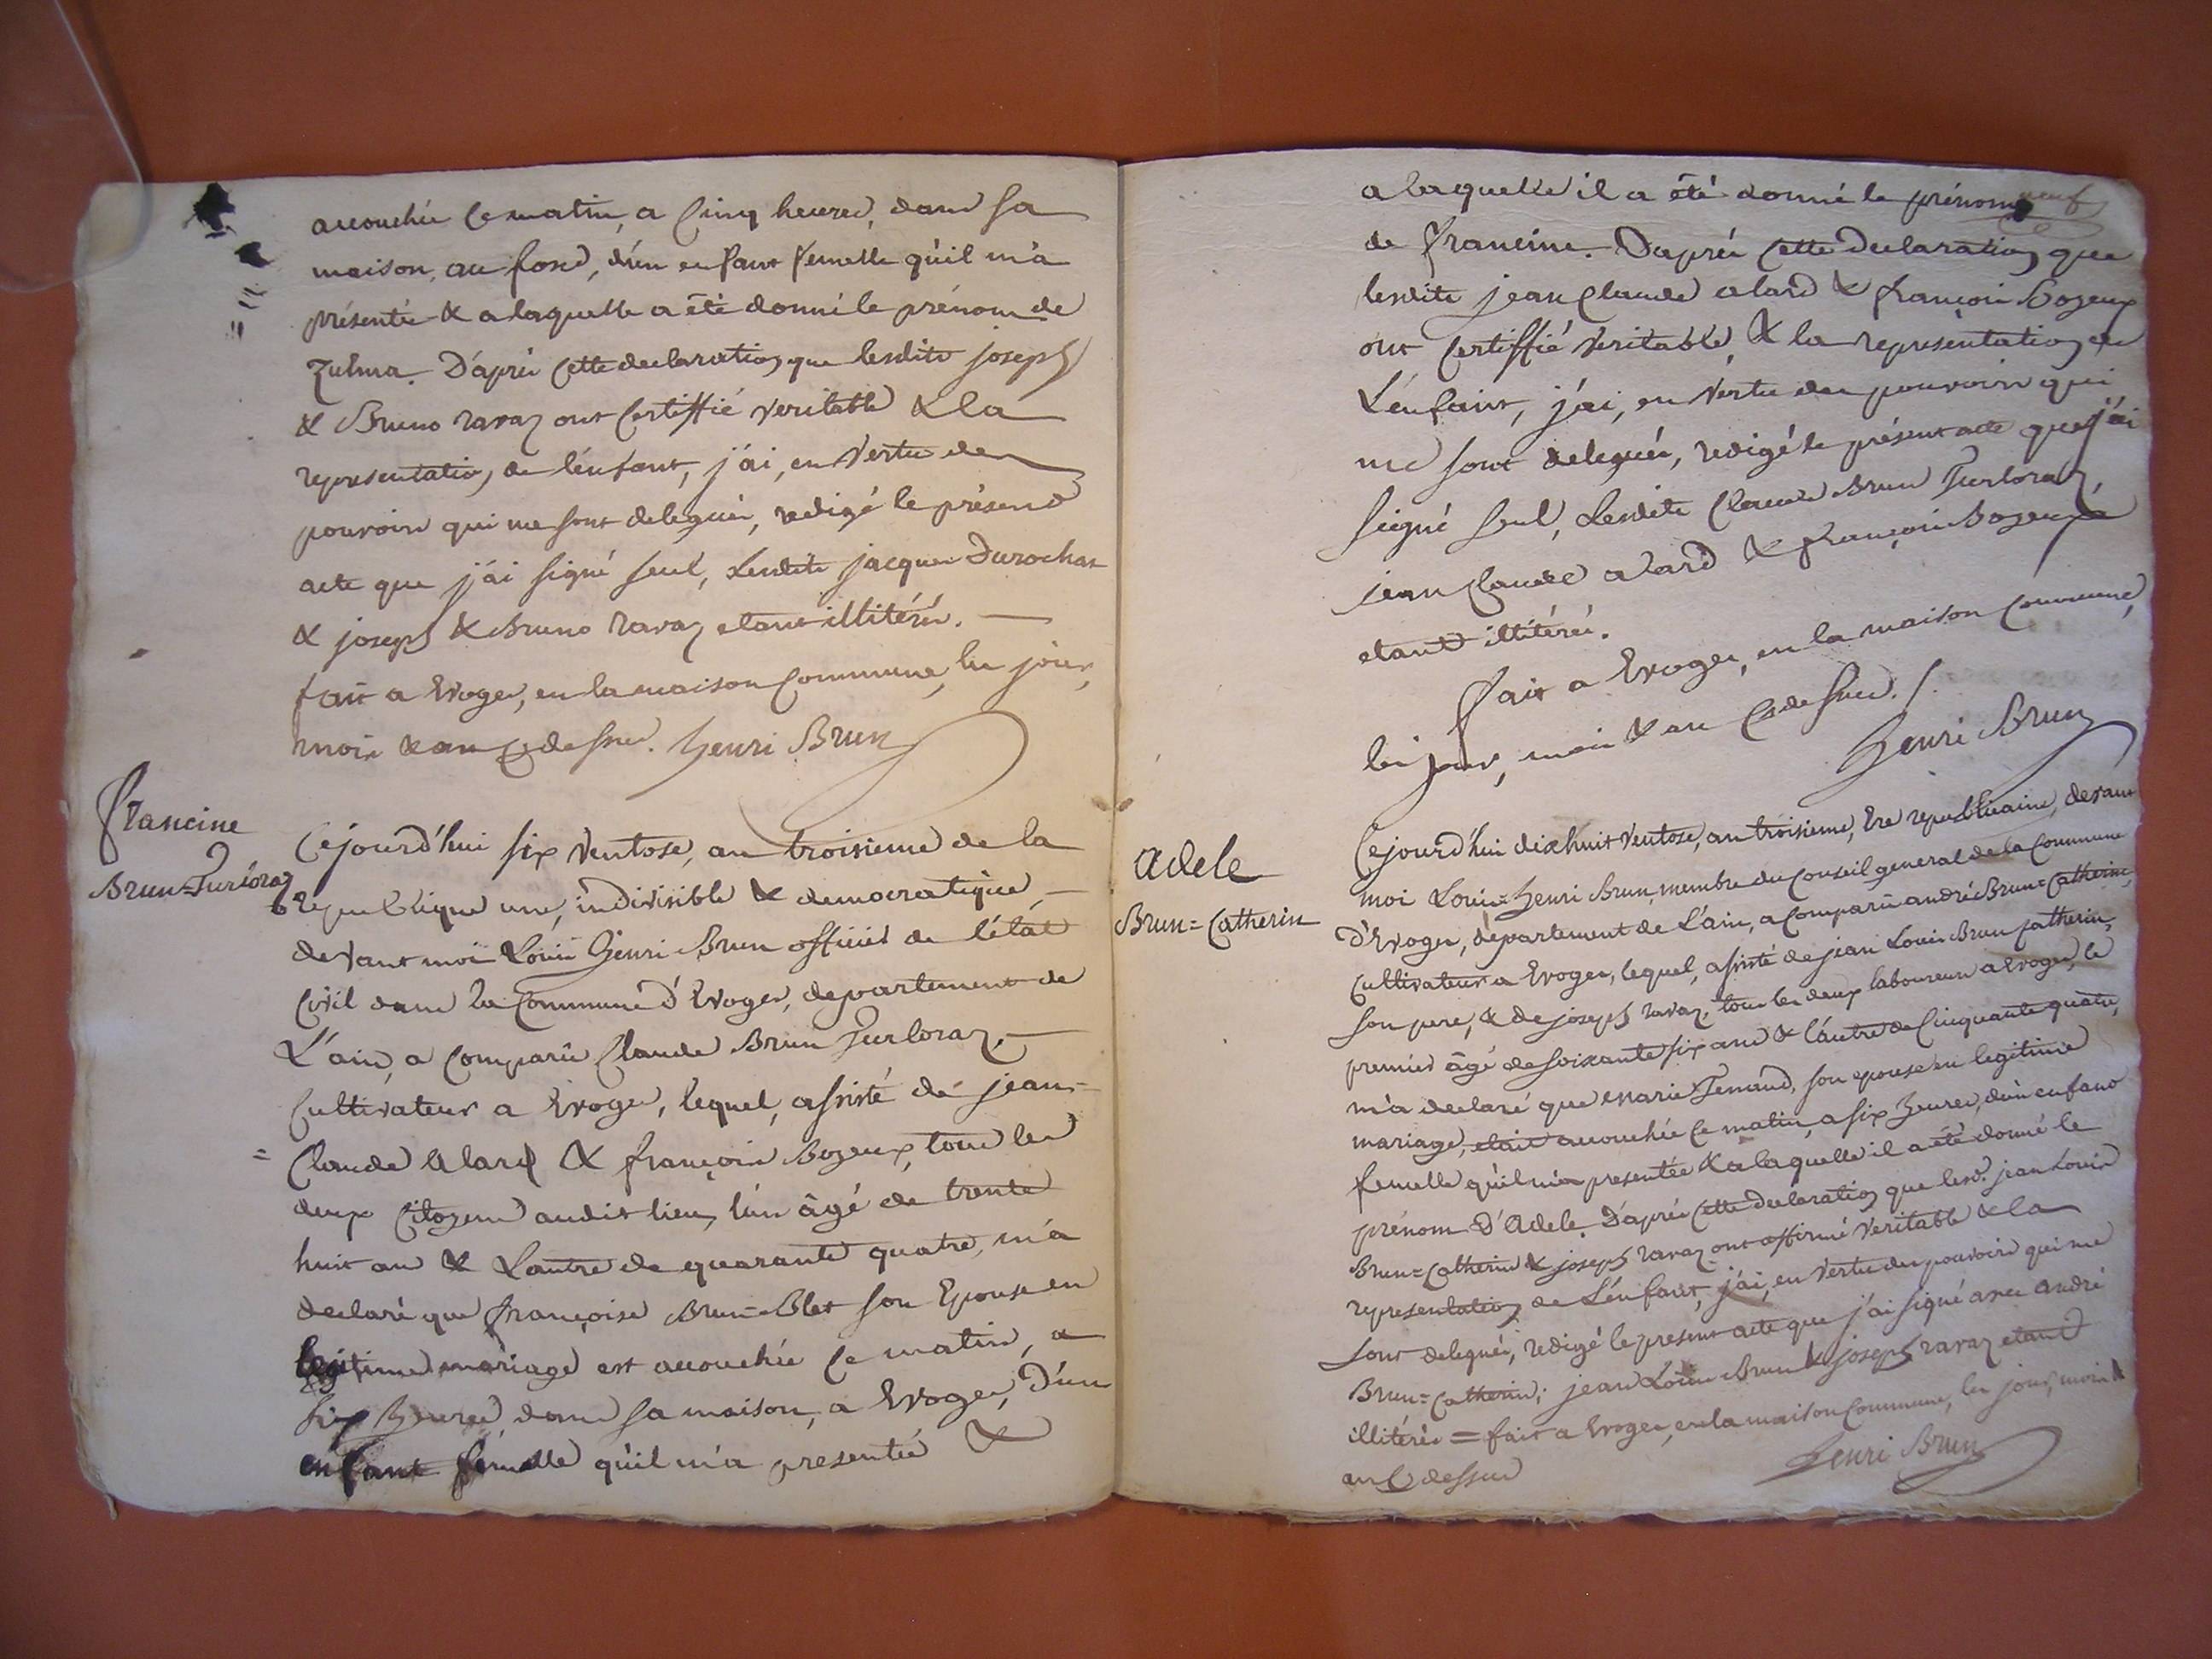 accouchée ce matin, a cinq heures, dans sa
maison, au fond, d'un enfant femelle qu'il m'a
présentée & a laquelle a été donné le prénom de
Zulma. D'après cette declaration que lesdits joseph
& Bruno ravaz ont certiffié veritable & la
representation de l'enfant, j'ai, en vertu des
pouvoirs qui me sont delegués, redigé le présent
acte que j'ai signé seul, Lesdits jacques Durochat
& joseph & Bruno Ravaz etant illitérés.
fait a Evoges, en la maison commune, les jour,
mois & an cy dessus. henri Brun
francine
Brun=Turloraz
Cejourd'hui six Ventose, an troisieme de la
republique une, indivisible & democratique
devant moi Louis henri Brun officier de l'état
civil dans la commune d'Evoges, departement de
L'ain, a comparu Claude Brun Turloraz,
cultivateur a Evoges, lequel, assisté de jean=
= Claude Alard & françois Bozeux, tous les
deux citoyens audit lieu, l'un âgé de trente
huit ans & L'autre de quarante quatre, m'a
declaré que françoise Brun=Blet son Epouse en
legitime mariage est accouchée ce matin, a
six heures, dans sa maison, a Evoges, D'un
enfant femelle qu'il m'a presentée &
neuf
a laquelle il a été donné le prénom
de francine. D'après cette declaration que
lesdits jean Claude alard & françois Bozeux
ont certiffié veritable, & la representation de
L'enfant, j'ai, en vertu des pouvoirs qui
me sont delegués, redigé le présent acte que j'ai
signé seul, Lesdits Claude Brun Turloraz,
jean Claude alard & françois Bozeux
etant illitérés.
fait a Evoges, en la maison commune,
les jour, mois & an cy dessus. /.
henri Brun
adele
Brun=Catherin
Cejourd'hui dixhuit Ventose, an troisieme, Ere republicaine, devant
moi Louis=henri Brun, membre du Conseil general de la commune
d'Evoges, département de L'ain, a comparu andré Brun=Catherin,
cultivateur a Evoges, lequel, assisté de jean Louis Brun Catherin,
son pere, & de joseph ravaz, tous les deux laboureurs a Evoges, le
premier âgé de soixante six ans & l'autre de cinquante quatre,
m'a declaré que Marie Tenand, son epouse en legitime
mariage, etait accouchée ce matin, a six heures, d'un enfant
femelle qu'il m'a presentée & a laquelle il a été donné le
prénom D'Adele. D'après cette declaration que lesd. jean Louis
Brun=Catherin & joseph ravaz ont affirmé veritable & la
representation de L'enfant, j'ai, en vertu des pouvoirs qui me
sont delegués, redigé le present acte que j'ai signé avec andré
Brun=Catherin; jean Louis Brun & joseph ravaz etant
illitérés = fait a Evoges, en la maison commune, les jour, mois &
an cy dessus
henri Brun